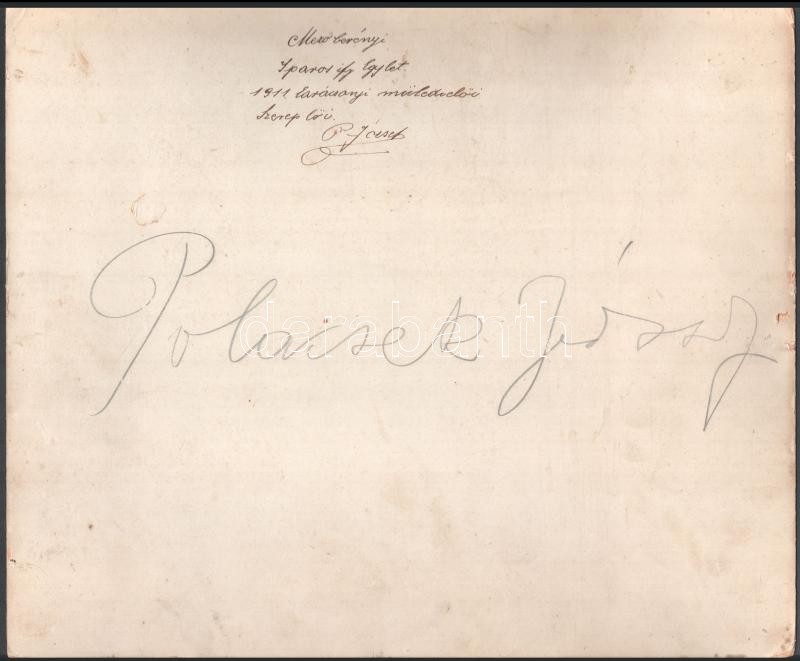 Mezőberényi
Iparos ifj Egylet
1911 karácsonyi műkedvelői
Szereplői.
P. József
Polacsek József
darabanth